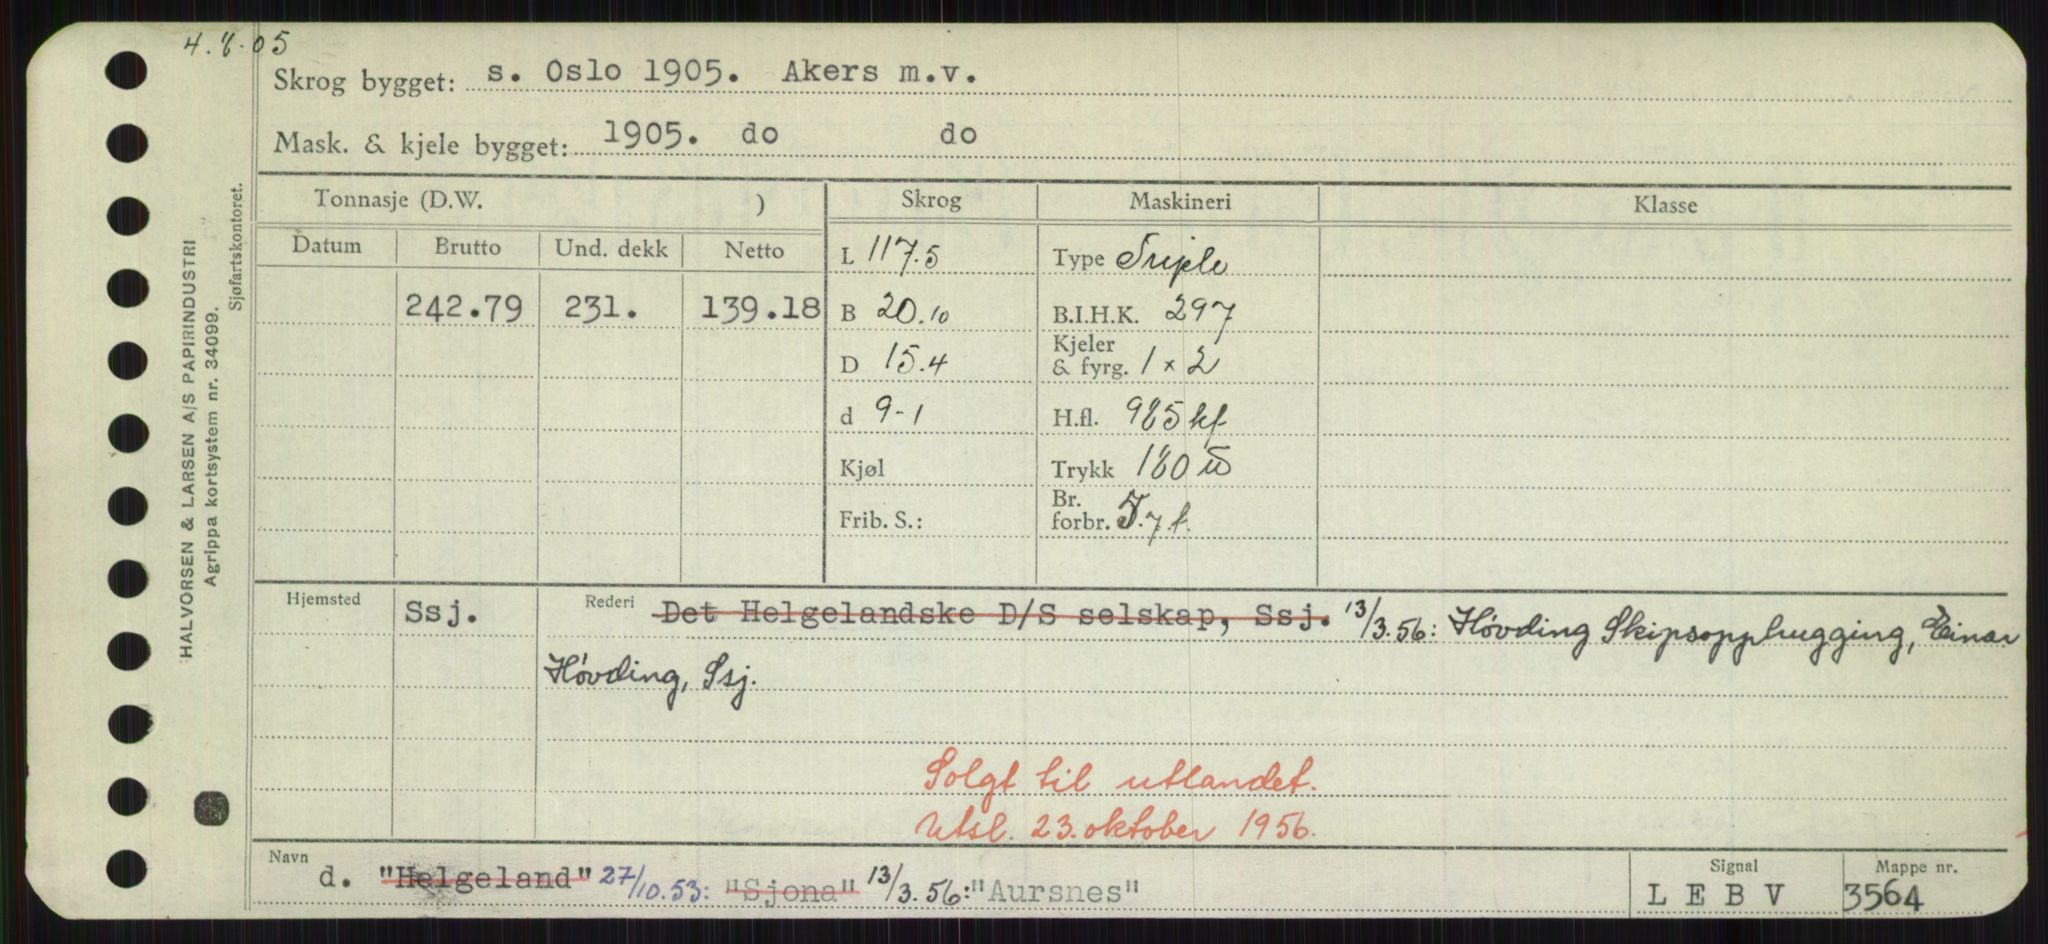 4.8.05
Skrog bygget: s. Oslo 1905. Akers m.v.
Mask. & kjele bygget: 1905. do do
Tonnasje (D.W. ) Skrog Maskineri Klasse
Datum Brutto Und. dekk Netto L 117.5 Type Triple
242.79 231. 139.18 B 20.10 B.I.H.K. 297
D 15.4 Kjeler & fyrg. 1 x 2
d 9-1 H.fl. 985 kf
Kjøl Trykk 180
Frib. S.: Br. forbr.
Hjemsted Ssj. Rederi Det Helgelandske D/S selskap, Ssj. 13/3.56: Høvding Skipsopphugging, Einar
Høvding, Ssj.
Solgt til utlandet.
Utsl. 23. oktober 1956.
Navn d. "Helgeland" 27/10.53: "Sjona" 13/3.56: "Aursnes" Signal LEBV Mappe nr. 3564
HALVORSEN & LARSEN A/S PAPIRINDUSTRI
Agrippa kortsystem nr. 34099.
Sjøfartskontoret.